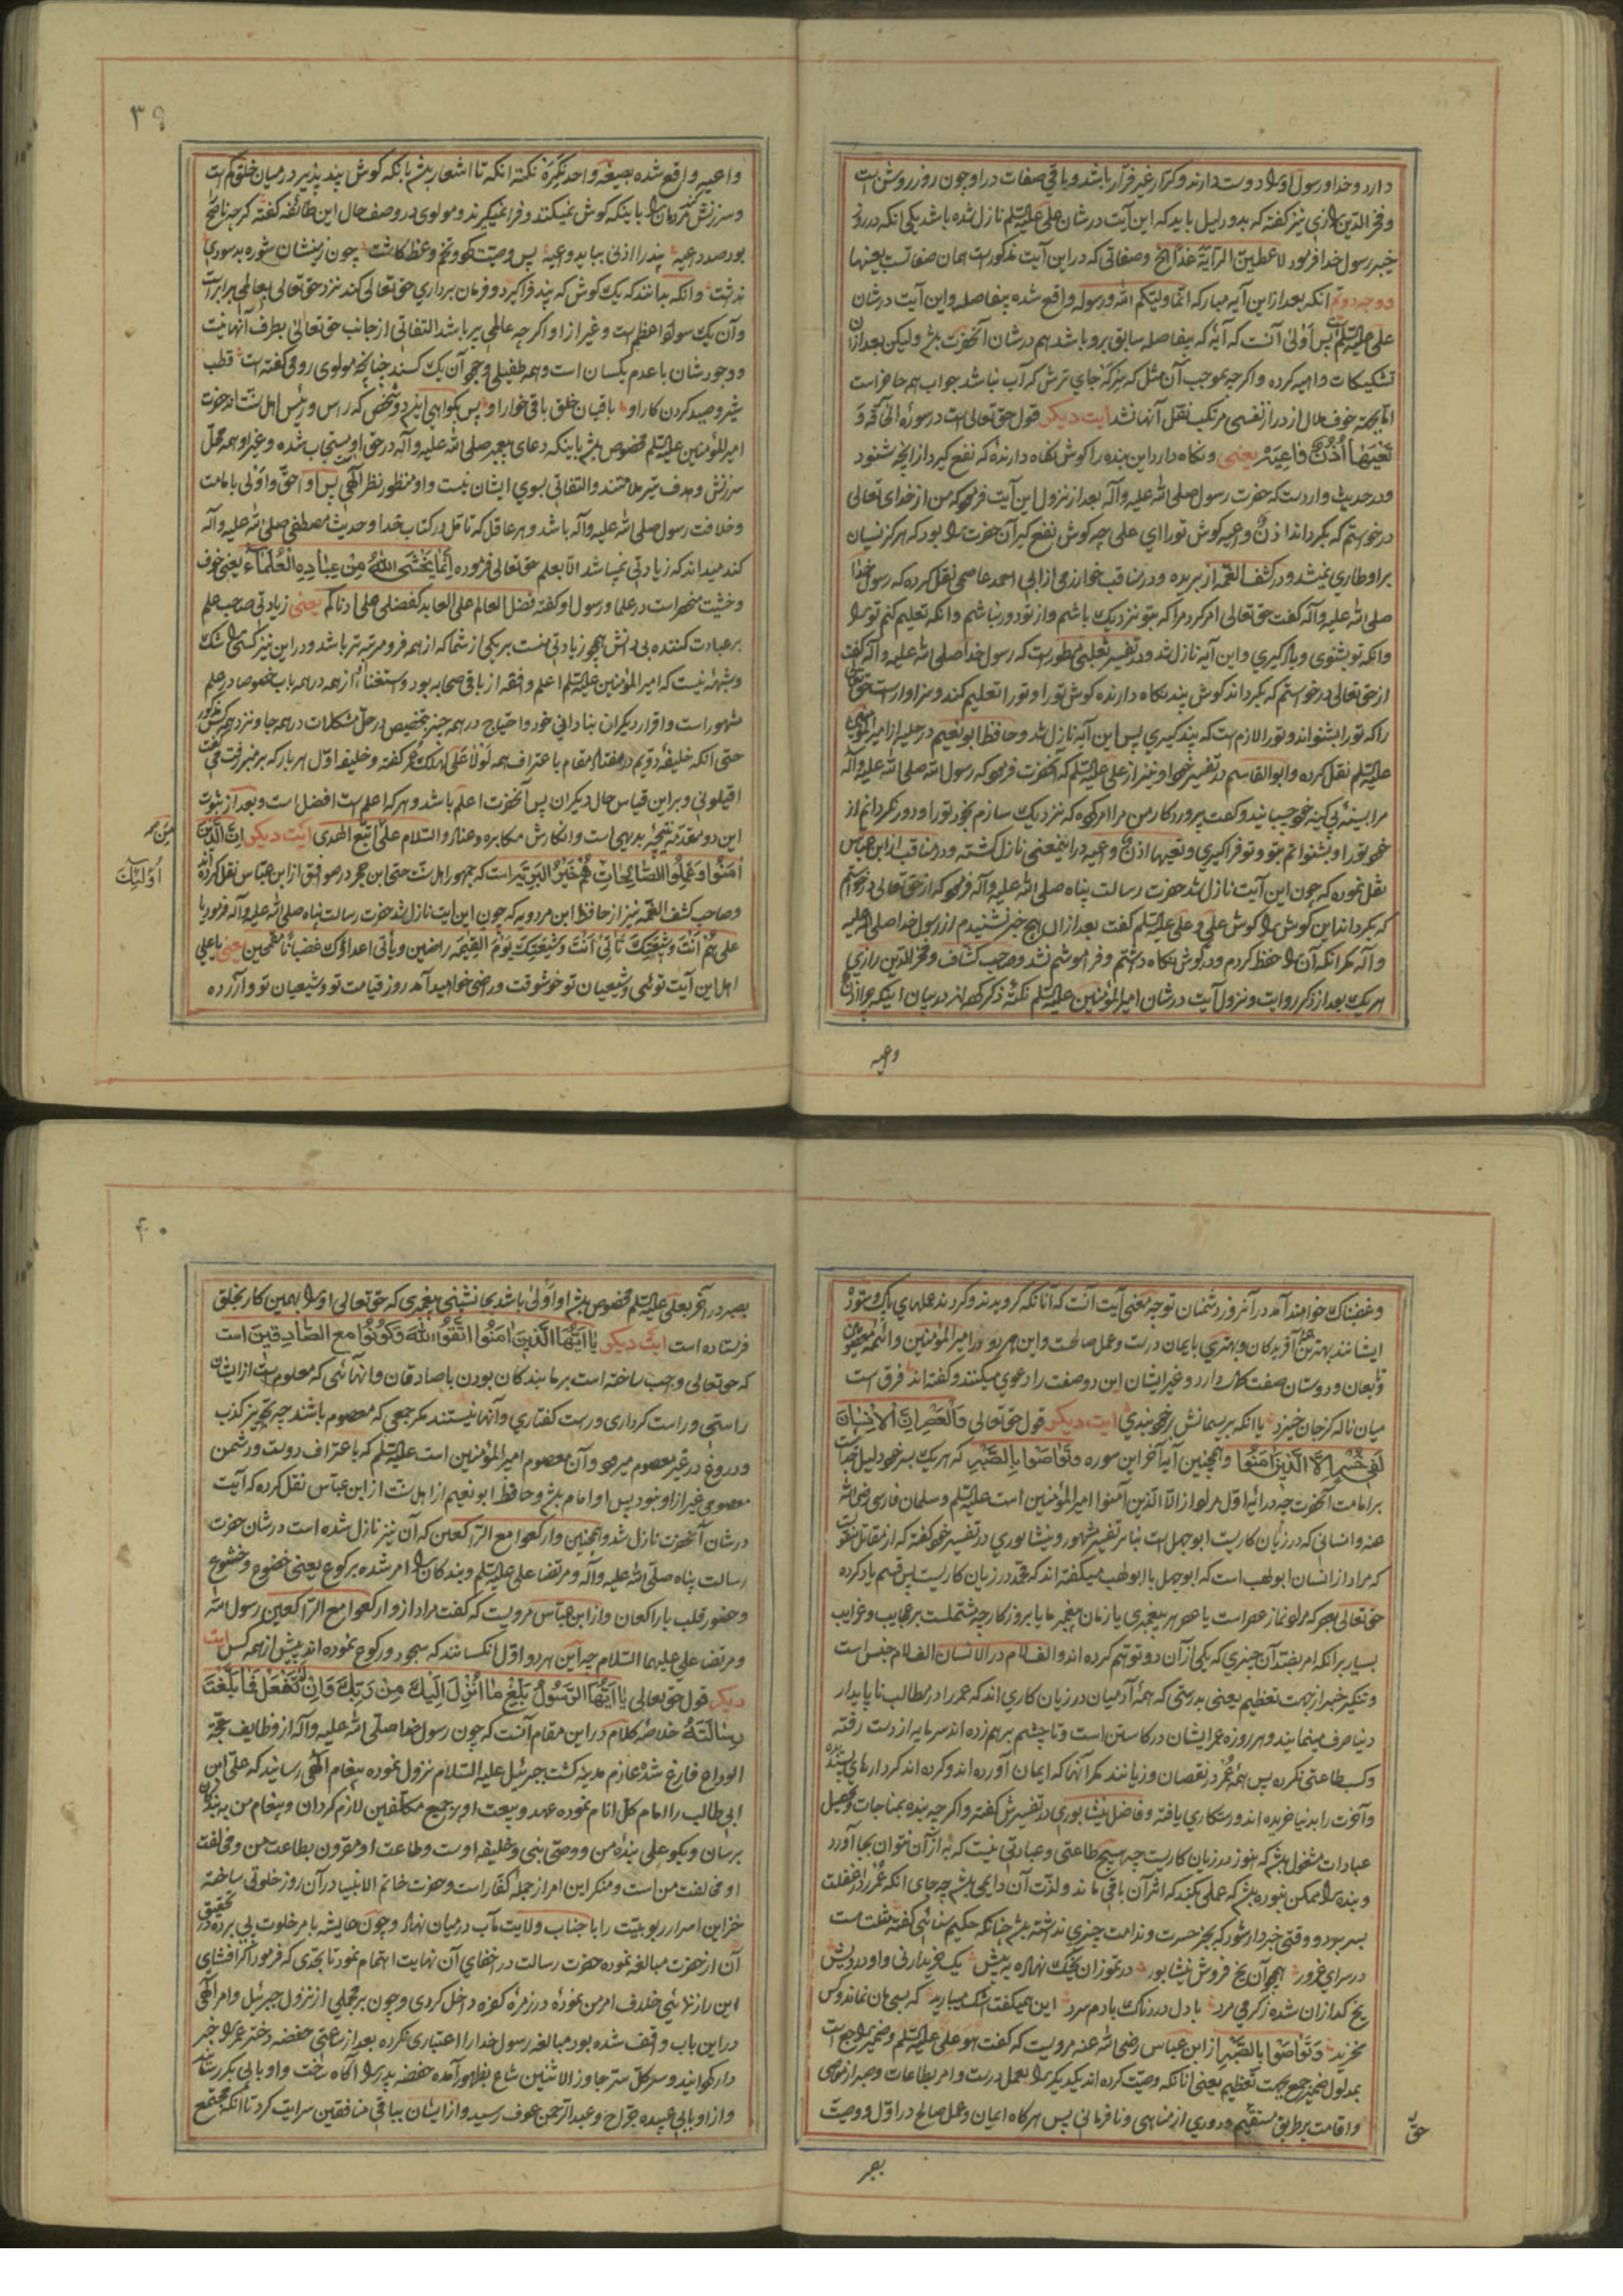 دارد و خدا و رسول او را دوست دارند و کرار غیر فرار باشد و باقی صفات در او چون روز روشن است
و فخر الدین رازی نیز گفته که بدو دلیل باید که این آیت در شان علی علیه السلم نازل شده باشد یکی انکه در روز
خیبر رسول خدا فرمود لاعطین الرایة غدا الخ و صفاتی که در این آیت مذکور است همان صفاتست بعینها
و وجه دوم انکه بعد از این آیه مبارکه انما ولیکم الله و رسوله واقع شده بیفاصله و این آیت در شان
علی علیه السلم است پس اولی آنست که آیه که بیفاصله سابق برو باشد هم در شان آنحضرت باشد ولیکن بعد از آن
تشکیکات واهیه کرده و اگرچه بموجب آن مثل که بز کنه جای ترش که آب نباشد جواب همه حاضر است
اما بجهته خوف ملال از دراز نفسی مرتکب نقل آنها نشد ایت دیکر قول حق تعالی است در سوره الحآقة و
تعیها اذن واعیة یعنی و نکاه دارد این پند را کوش نکاه دارنده که نفع کیرد از انچه شنود
و در حدیث وارد است که حضرت رسول صلی الله علیه وآله بعد از نزول این آیت فرمود که من از خدای تعالی
درخواستم که بکرداند اذن واعیه کوش تو را ای علی چه کوش نفع کیر آن حضرت را بود که هرکز نسیان
بر او طاری نمیشد و در کشف الغمه از بریده و در مناقب خوارزمی از ابی احمد عاصمی نقل کرده که رسول خدا
صلی الله علیه وآله گفت حق تعالی امر کرد مرا که بتو نزدیک باشم و از تو دور نباشم و انکه تعلیم کنم تو را
و انکه تو بشنوی و یاد کیری و این آیه نازل شد و در تفسیر ثعلبی مسطور است که رسول خدا صلی الله علیه وآله گفت
از حق تعالی درخواستم که بکرداند کوش پند نکاه دارنده کوش تو را و تو را تعلیم کند و سزاوار است حق تعالی
را که تو را بشنواند و تو را لازم است که پند کیری پس این آیه نازل شد و حافظ ابو نعیم در حلیه از امیر المؤمنین
علیه السلم نقل کرده و ابو القاسم در تفسیر خود و نیز از علی علیه السلم که آنحضرت فرمود که رسول الله صلی الله علیه وآله
مرا بسینه بی کینه خود چسبانید و گفت پروردکار من مرا امر کرده که نزدیک سازم بخود تو را و دور نکردانم از
خود تو را و بشنوانم بتو و تو فرا کیری و تعیها اذن واعیه در اینمعنی نازل کشته و در مناقب از ابن عباس
نقل نموده که چون این آیت نازل شد حضرت رسالت پناه صلی الله علیه وآله فرمود که از حق تعالی درخواستم
که بکرداند این کوش را کوش علی و علی علیه السلم گفت بعد از ان هیچ خبر نشنیدم از رسول خدا صلی الله علیه
وآله مکر انکه آن را حفظ کردم و در کوش نکاه داشتم و فراموشم نشد و صاحب کشاف و فخر الدین رازی
هر یک بعد از ذکر روایت و نزول آیت در شان امیر المؤمنین علیه السلم نکته ذکر کرده اند در بیان اینکه چرا اذن
واعیه
۳۹
واعیه واقع شده بصیغه واحد نکره نکته انکه تا اشعار باشد بانکه کوش پند پذیر در میان خلق کم است
و سرزنش مردمان را باینکه کوش نمیکنند و فرا نمیکیرند و مولوی در وصف حال این طائفه گفته کرچه ناصح
بود صد داعیه پند را اذنی بباید واعیه پس وصیت کرد و تخم وعظ کاشت چون زمینشان شوره بد سودی
نداشت و انکه بدانند که یک کوش که پند فرا کیرد و فرمان برداری حق تعالی کند نزد حق تعالی بعالمی برابر است
و آن یک سواد اعظم است و غیر از او اکرچه عالمی پر باشد التفاتی از جانب حق تعالی بطرف آنها نیست
و وجودشان با عدم یکسان است و همه طفیلی وجود آن یک کسند چنانچه مولوی رومی گفته است قطب
شیر و صید کردن کار او باقیان خلق باقی خوار او پس کواهی این دو شخص که راس و رئیس اهل سنت اند حضرت
امیر المؤمنین علیه السلم مخصوص باشد باینکه دعای پیغمبر صلی الله علیه وآله در حق او مستجاب شده و غیر او همه محل
سرزنش و هدف تیر ملامتند و التفاتی بسوی ایشان نیست و او منظور نظر الهی پس او احق و اولی بامامت
و خلافت رسول صلی الله علیه وآله باشد و هر عاقل که تامل در کتاب خدا و حدیث مصطفی صلی الله علیه وآله
کند میداند که زیادتی نمیباشد الا بعلم حق تعالی فرموده انما یخشی الله من عباده العلماء یعنی خوف
و خشیت منحصر است در علما و رسول او گفته فضل العالم علی العابد کفضلی علی ادناکم یعنی زیادتی صاحب علم
بر عبادت کننده بی دانش همچو زیادتی منست بر یکی از شما که از همه فرو مرتبه تر باشد و در این نیز کسی را شک
و شبهه نیست که امیر المؤمنین علیه السلم اعلم و افقه از باقی صحابه بود و استغناء از همه در همه باب خصوصا در علم
مشهور است و اقرار دیکران بنادانی خود و احتیاج در همه چیز بتخصیص در حل مشکلات در همه جا و نزد همه کس مذکور
حتی انکه خلیفه دویم در هفتاد مقام باعتراف همه لولا علی لهلک عمر گفته و خلیفه اول هر بار که بر منبر رفت گفت
اقیلونی و بر این قیاس حال دیکران پس آنحضرت اعلم باشد و هر که اعلم است افضل است و بعد از ثبوت
این دو مقدمه نتیجه بدیهی است و انکارش مکابره و عناد والسلام علی من اتبع الهدی ایت دیکر ان الذین
امنوا وعملوا الصالحات اولئک هم خیر البریة است که جمهور اهل سنت حتی ابن حجر در صواعق از ابن عباس نقل کرده اند
و صاحب کشف الغمه نیز از حافظ ابن مردویه که چون این ایت نازل شد حضرت رسالت پناه صلی الله علیه وآله فرمود یا
علی هم انت وشیعتک تاتی انت وشیعتک یوم القیمة راضین ویاتی اعداؤک غضبانا مقمحین یعنی یا علی
اهل این آیت توئی و شیعیان تو خوشوقت و راضی خواهید آمد روز قیامت تو و شیعیان تو و آزرده
و غضبناک خواهند آمد در آنروز دشمنان تو چه معنی آیت آنست که آنانکه کرویدند و کردند عملهای پاک و ستوده
ایشانند بهترین آفریدکان و بهتری بایمان درست و عمل صالحست و این هر دو در امیر المؤمنین و ائمه معصومین
و تابعان و دوستان صفت کمال دارد و غیر ایشان این دو صفت را دعوی میکنند و گفته اند فرق است
میان ناله کز جان خیزد یا انکه بریسمانش بر خود بندی ایت دیکر قول حق تعالی والعصر ان الانسان
لفی خسر الا الذین امنوا و همچنین آیه آخر این سوره وتواصوا بالصبر که هر یک بسر خود دلیل جداست
بر امامت آنحضرت چه در آیه اول مراد از الا الذین آمنوا امیر المؤمنین است علیه السلم و سلمان فارسی رضی الله
عنه و انسانی که در زیان کاریست ابو جهل است بنا بر تفسیر مشهور و نیشابوری در تفسیر خود گفته که از مقاتل منقولست
که مراد از انسان ابو لهب است که ابو جهل با ابو لهب میگفته اند که محمد در زیان کاریست پس قسم یاد کرده
حق تعالی بعصر که مراد نماز عصر است یا عصر هر پیغمبری یا زمان پیغمبر ما یا بروزکار چه مشتملست بر عجایب و غرایب
بسیار بر انکه امر بضد آن چیزی که یکی از آن دو توهم کرده اند و الف لام در الانسان الف لام جنس است
و تنکیر خسر از جهت تعظیم یعنی بدرستی که همه آدمیان در زیان کاری اند که عمر را در مطالب ناپایدار
دنیا صرف مینمایند و هر روزه عمر ایشان در کاستن است و تا چشم برهم زده اند سرمایه از دست رفته
و کسب طاعتی نکرده پس همه عمر در نقصان و زیانند مکر آنها که ایمان آورده اند و کرده اند کردارهای پسندیده
و آخرت را بدنیا خریده اند و رستکاری یافته و فاضل نیشابوری در تفسیرش گفته و اکرچه بنده بمناجات و تحصیل
عبادات مشغول باشد که هنوز در زیان کاریست چه هیچ طاعتی و عبادتی نیست که به از آن نتوان بجا آورد
و بنده را ممکن نبوده باشد که عملی بکند که اثر آن باقی ماند و لذت آن دایمی باشد چه جای انکه عمر را در غفلت
بسر برد و وقتی خبردار شود که بجز حسرت و ندامت چیزی نداشته باشد چنانکه حکیم سنائی گفته مثلت هست
در سرای غرور همچو آن یخ فروش نیشابور در تموز ان یخک نهاده به پیش یک خریدار نی و او درویش
یخ کدازان شده ز کرمی مرد با دل دردناک با دم سرد این همیگفت و اشک میبارید که بسی مان نماند و کس
نخرید وتواصوا بالصبر از ابن عباس رضی الله عنه مرویست که گفت هو علی علیه السلم و ضمیر راجع است
بمدلول ضمیر جمع بجهت تعظیم یعنی انانکه وصیت کرده اند یکدیکر را بعمل درست و امر بطاعات و صبر از معاصی
و اقامت بر طریق مستقیم و دوری از مناهی و نافرمانی پس هرکاه ایمان و عمل صالح در اول و وصیت
بحق
بصبر
۴۰
بصبر در آخر بعلی علیه السلم مخصوص باشد او اولی باشد بجانشینی پیغمبری که حق تعالی او را بهمین کار بخلق
فرستاده است ایت دیکر یا ایها الذین امنوا اتقوا الله وکونوا مع الصادقین است
که حق تعالی واجب ساخته است بر ما بندکان بودن با صادقان و انهائی که معلوم است از ایشان
راستی و راست کرداری و راست گفتاری و آنها نیستند مکر جمعی که معصوم باشند چه تجویز کذب
و دروغ در غیر معصوم میرود و آن معصوم امیر المؤمنین است علیه السلم که باعتراف دوست و دشمن
معصومی غیر از او نبود پس او امام باشد و حافظ ابو نعیم از اهل سنت از ابن عباس نقل کرده که آیت
در شان آنحضرت نازل شد و همچنین وارکعوا مع الراکعین که آن نیز نازل شده است در شان حضرت
رسالت پناه صلی الله علیه وآله و مرتضا علی علیه السلم و بندکان را امر شده برکوع یعنی خضوع و خشوع
و حضور قلب با راکعان و از ابن عباس مرویست که گفت مراد از وارکعوا مع الراکعین رسول الله
و مرتضا علی علیهما السلام چه این هر دو اول انکسانند که سجود و رکوع نموده اند پیش از همه کس ایت
دیکر قول حق تعالی یا ایها الرسول بلغ ما انزل الیک من ربک وان لم تفعل فما بلغت
رسالته خلاصه کلام در این مقام آنست که چون رسول خدا صلی الله علیه وآله از وظایف حجة
الوداع فارغ شد عازم مدینه کشت جبرئیل علیه السلام نزول نموده پیغام الهی رسانید که علی ابن
ابی طالب را امام کل انام نموده عهد و بیعت او بر جمیع مکلفین لازم کردان و پیغام من به بندکان
برسان و بکو علی بنده من و وصی نبی و خلیفه اوست و طاعت او مقرون بطاعت من و مخالفت
او مخالفت من است و منکر این امر از جمله کفار است و حضرت خاتم الانبیا در آن روز خلوتی ساخته
خزاین اسرار ربوبیت را با جناب ولایت مآب درمیان نهاد و چون عایشه بامر خلوت پی برده در تحقیق
آن از حضرت مبالغه نموده حضرت رسالت در اخفای آن نهایت اهتمام نمود تا بحدی که فرمود اکر افشای
این راز نمائی خلاف امر من نموده در زمره کفره داخل کردی و چون بر مجملی از نزول جبرئیل و امر الهی
در این باب واقف شده بود مبالغه رسول خدا را اعتباری نکرده بعد از ساعتی حفصه دختر عمر را خبر
دار کردانید و سر کل سر جاوز الاثنین شاع بظهور آمده حفصه پدر را آکاه ساخت و او بابی بکر رساند
و از او بابی عبیده جراح و عبد الرحمن عوف رسید و از ایشان بباقی منافقین سرایت کرد تا انکه مجتمع